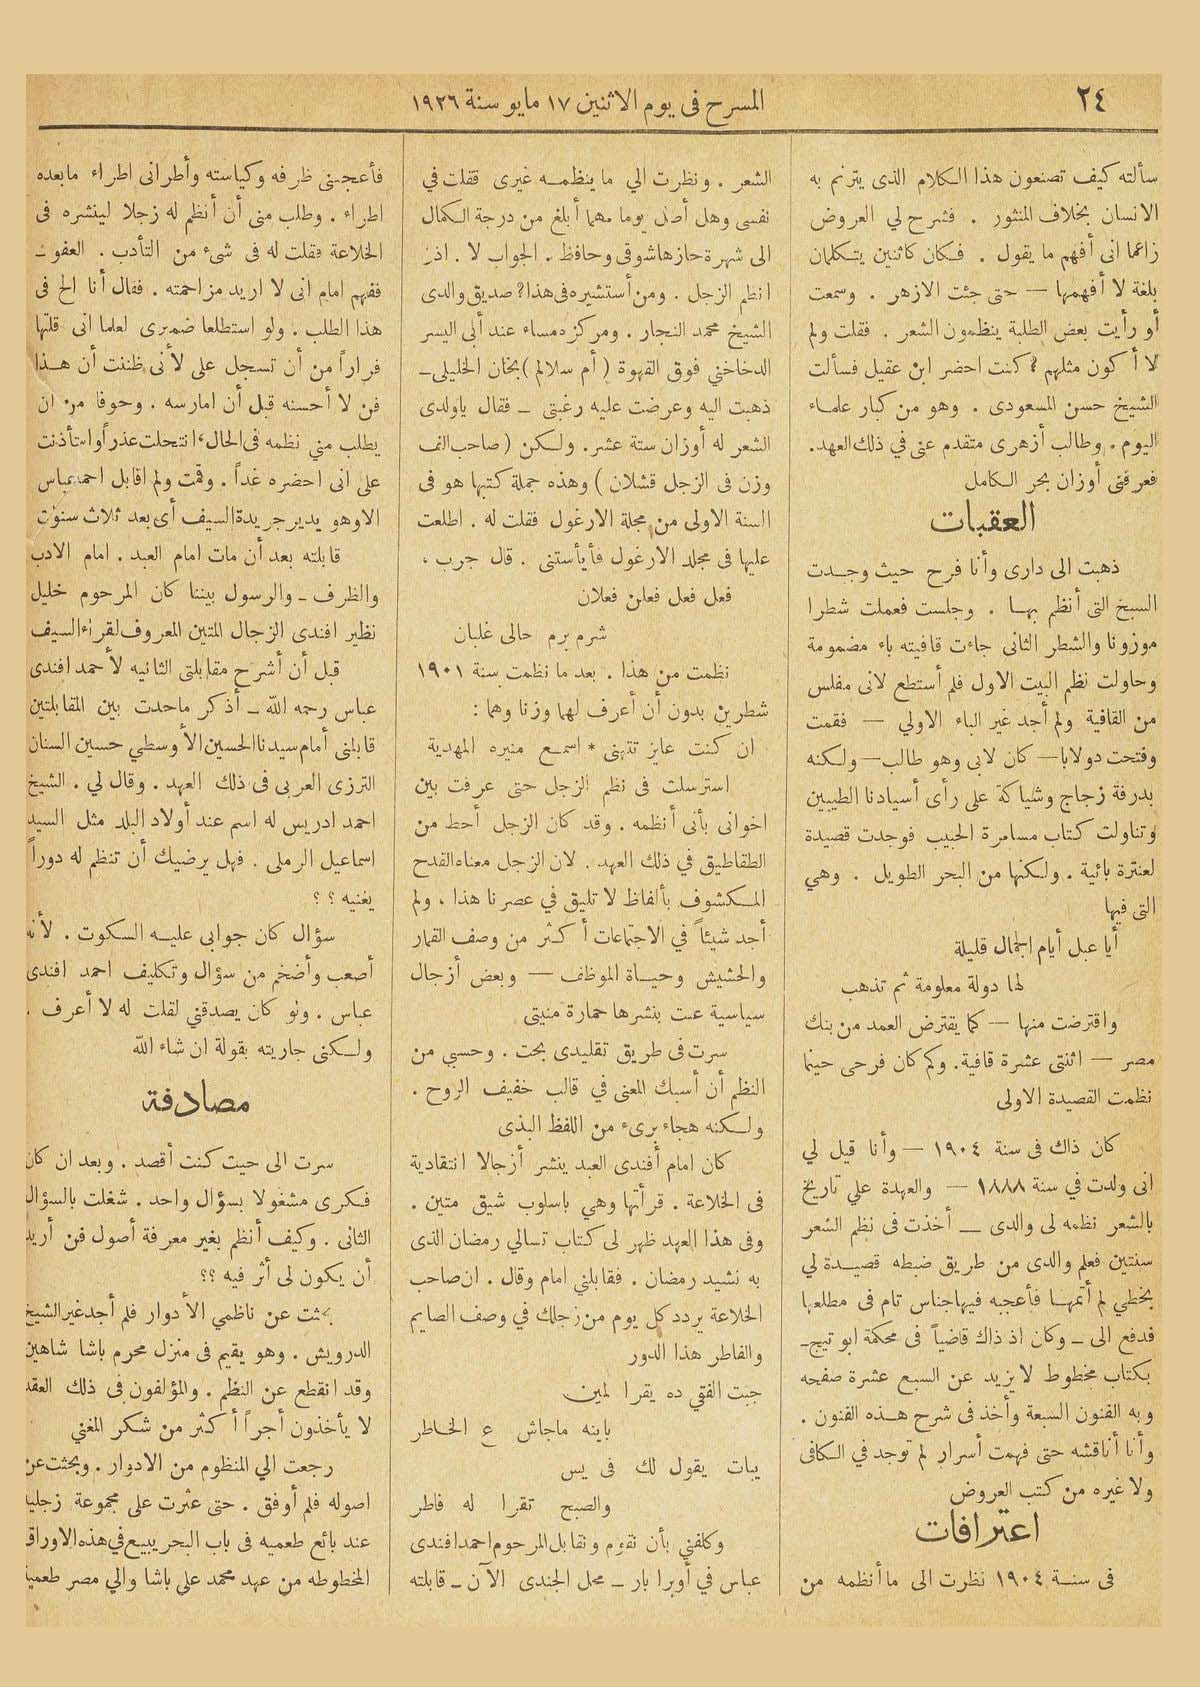 ٢٤
المسرح فى يوم الاثنين ١٧ مايو سنة ١٩٢٦
سألته كيف تصنعون هذا الكلام الذى يترنم به
الانسان بخلاف المنثور . فشرح لي العروض
زاعما انى أفهم ما يقول . فكان كاثنين يتكلمان
بلغة لا أفهمها — حتى جئت الازهر . وسمعت
أو رأيت بعض الطلبة ينظمون الشعر . فقلت ولم
لا أكون مثلهم ؟ كنت احضر ابن عقيل فسألت
الشيخ حسن المسعودى . وهو من كبار علماء
اليوم . وطالب أزهرى متقدم عنى في ذلك العهد .
فعرفنى أوزان بحر الكامل
العقبات
ذهبت الى دارى وأنا فرح حيث وجدت
السبخ التى أنظم بها . وجلست فعملت شطرا
موزونا والشطر الثانى جاءت قافيته باء مضمومة
وحاولت نظم البيت الاول فلم أستطع لانى مفلس
من القافية ولم أجد غير الباء الاولي — فقمت
وفتحت دولابا — كان لابى وهو طالب — ولكنه
بدرفة زجاج وشياكة على رأى أسيادنا الطيبين
وتناولت كتاب مسامرة الحبيب فوجدت قصيدة
لعنترة بائية . ولكنها من البحر الطويل . وهي
التى فيها
أيا عبل أيام الجمال قليلة
لها دولة معلومة ثم تذهب
واقترضت منها — كما يقترض العمد من بنك
مصر — اثنتى عشرة قافية . وكم كان فرحى حينما
نظمت القصيدة الاولى
كان ذاك فى سنة ١٩٠٤ — وأنا قيل لي
انى ولدت في سنة ١٨٨٨ — والعهدة علي تاريخ
بالشعر نظمه لى والدى — أخذت فى نظم الشعر
سنتين فعلم والدى من طريق ضبطه قصيدة لي
بخطي لم أتمها فأعجبه فيها جناس تام فى مطلعها
فدفع الى — وكان اذ ذاك قاضياً فى محكمة ابو تيج —
بكتاب مخطوط لا يزيد عن السبع عشرة صفحه
وبه الفنون السبعة وأخذ فى شرح هذه الفنون .
وأنا أناقشه حتى فهمت أسرار لم توجد في الكافى
ولا غيره من كتب العروض
اعترافات
فى سنة ١٩٠٤ نظرت الى ما أنظمه من
الشعر . ونظرت الي ما ينظمه غيرى فقلت في
نفسى وهل أصل يوما مهما أبلغ من درجة الكمال
الى شهرة حازها شوقى وحافظ . الجواب لا . اذن
انظم الزجل . ومن أستشيره فى هذا ؟ صديق والدى
الشيخ محمد النجار . ومركزه مساء عند أبى اليسر
الدخاخني فوق القهوة ( أم سلالم ) بخان الخليلى —
ذهبت اليه وعرضت عليه رغبتى — فقال ياولدى
الشعر له أوزان ستة عشر . ولكن ( صاحب الف
وزن فى الزجل قشلان ) وهذه جملة كتبها هو فى
السنة الاولى من مجلة الارغول فقلت له . اطلعت
عليها فى مجلد الارغول فأيأستنى . قال جرب ،
فعل فعل فعلن فعلان
شرم برم حالى غلبان
نظمت من هذا . بعد ما نظمت سنة ١٩٠١
شطرين بدون أن أعرف لهما وزنا وهما :
ان كنت عايز تتهنى * اسمع منيره المهدية
استرسلت فى نظم الزجل حتى عرفت بين
اخوانى بأنى أنظمه . وقد كان الزجل أحط من
الطقاطيق في ذلك العهد . لان الزجل معناه القدح
المكشوف بألفاظ لا تليق في عصرنا هذا ، ولم
أجد شيئاً في الاجتماعات أكثر من وصف القمار
والحشيش وحياة الموظف — وبعض أزجال
سياسية عنت بنشرها حمارة منيتى
سرت فى طريق تقليدى بحت . وحسبي من
النظم أن أسبك المعنى في قالب خفيف الروح .
ولكنه هجاء برىء من اللفظ البذى
كان امام أفندى العبد ينشر أزجالا انتقادية
فى الخلاعة . قرأتها وهي باسلوب شيق متين .
وفى هذا العهد ظهر لى كتاب تسالي رمضان الذى
به نشيد رمضان . فقابلني امام وقال . ان صاحب
الخلاعة يردد كل يوم من زجلك في وصف الصايم
والفاطر هذا الدور
جبت الفقي ده يقرا لمين
باينه ماجاش ع الخاطر
يبات يقول لك فى يس
والصبح تقرا له فاطر
وكلفني بأن نقوم ونقابل المرحوم احمد افندى
عباس في أوبرا بار — محل الجندى الآن — قابلته
فأعجبنى ظرفه وكياسته وأطرانى اطراء مابعده
اطراء . وطلب منى أن أنظم له زجلا لينشره فى
الخلاعة فقلت له فى شىء من التأدب . العفو —
ففهم امام انى لا اريد مزاحمته . فقال أنا الح فى
هذا الطلب . ولو استطلعا ضميرى لعلما انى قلتها
فراراً من أن تسجل على لأنى ظننت أن هذا
فن لا أحسنه قبل أن امارسه . وخوفا من ان
يطلب مني نظمه فى الحال ، انتحلت عذراً واستأذنت
على انى احضره غداً . وقمت ولم اقابل احمد عباس
الا وهو يدير جريدة السيف أى بعد ثلاث سنوات
قابلته بعد أن مات امام العبد . امام الادب
والظرف — والرسول بيننا كان المرحوم خليل
نظير افندى الزجال المتين المعروف لقراء السيف
قبل أن أشرح مقابلتى الثانيه لأحمد افندى
عباس رحمه الله — أذكر ماحدث بين المقابلتين
قابلنى أمام سيدنا الحسين الأوسطي حسين السنان
الترزى العربى فى ذلك العهد . وقال لي . الشيخ
احمد ادريس له اسم عند أولاد البلد مثل السيد
اسماعيل الرملى . فهل يرضيك أن تنظم له دوراً
يغنيه ؟ ؟
سؤال كان جوابى عليه السكوت . لأنه
أصعب وأضخم من سؤال وتكليف احمد افندى
عباس . ولو كان يصدقني لقلت له لا أعرف .
ولكنى جاريته بقولة ان شاء الله
مصادفة
سرت الى حيث كنت أقصد . وبعد ان كان
فكرى مشغولا بسؤال واحد . شغلت بالسؤال
الثانى . وكيف أنظم بغير معرفة أصول فن أريد
أن يكون لى أثر فيه ؟؟
بحثت عن ناظمي الأدوار فلم أجد غير الشيخ
الدرويش . وهو يقيم فى منزل محرم باشا شاهين
وقد انقطع عن النظم . والمؤلفون فى ذلك العقد
لا يأخذون أجراً أكثر من شكر المغني
رجعت الي المنظوم من الادوار . وبحثت عن
اصوله فلم أوفق . حتى عثرت على مجموعة زجلية
عند بائع طعميه فى باب البحر يبيع في هذه الاوراق
المخطوطه من عهد محمد على باشا والي مصر طعمية